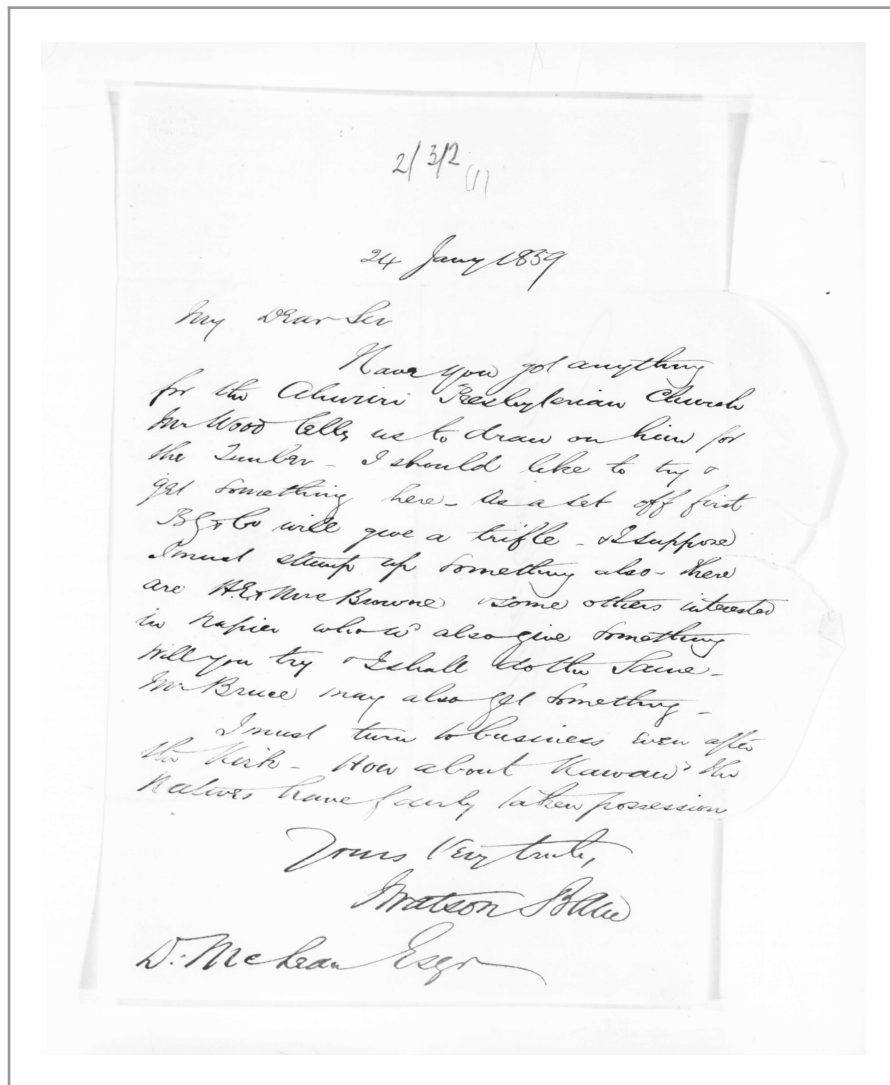 2/3/2 (1)
24 Jany 1859
My Dear Sir
Have you got anything
for the Ahuriri Presbyterian Church
Mr Wood tells us to draw on him for
the Timber - I should like to try &
get something here - As a set off first
B G & Co will give a trifle - & I suppose
I must stump up something also - there
are H.E. & Mrs Browne & some others interested
in Napier who wd also give something
Will you try & I shall do the same -
Mr Bruce may also get something -
I must turn to business even after
the Kirk - How about Kawau? the
Natives have fairly taken possession
Yours Very truly,
Watson
D. McLean Esqr